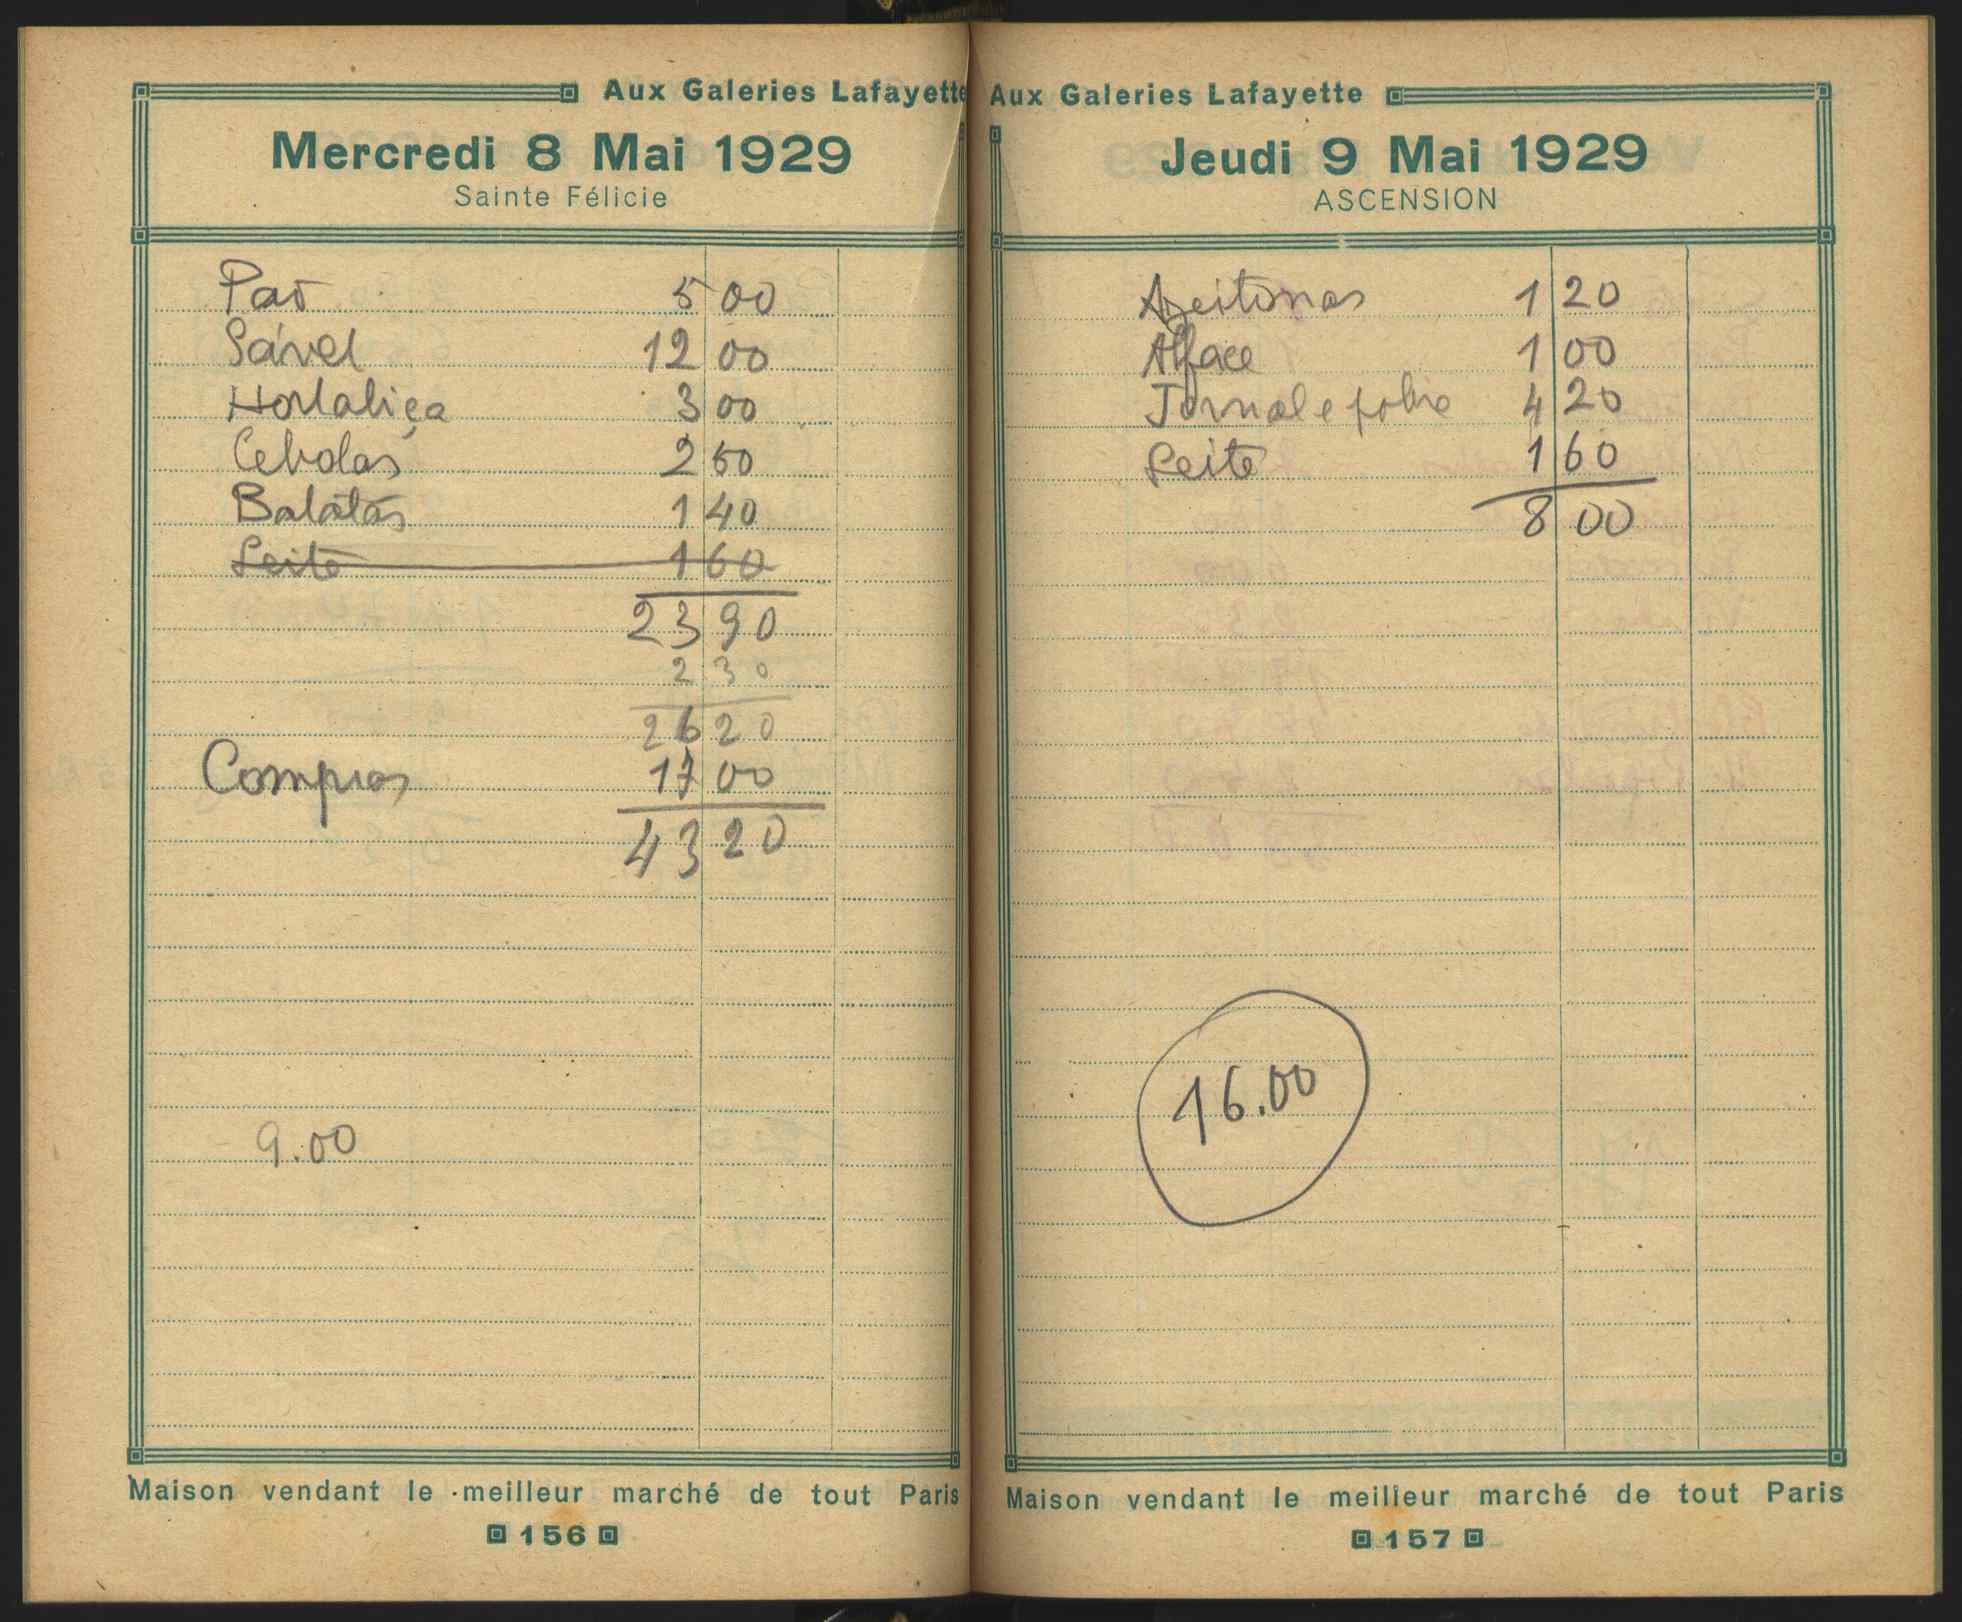 Aux Galeries Lafayette
Mercredi 8 Mai 1929
Sainte Félicie
Paõ 5 00
Sável 12 00
Hortaliça 3 00
Cebolas 2 50
Batatas 1 40
Leite 1 60
23 90
2 30
26 20
Compras 17 00
43 20
9.00
Maison vendant le meilleur marché de tout Paris
156
Aux Galeries Lafayette
Jeudi 9 Mai 1929
ASCENSION
Azeitonas 1 20
Alface 1 00
Jornal e pobre 4 20
Leite 1 60
8 00
16.00
Maison vendant le meilleur marché de tout Paris
157